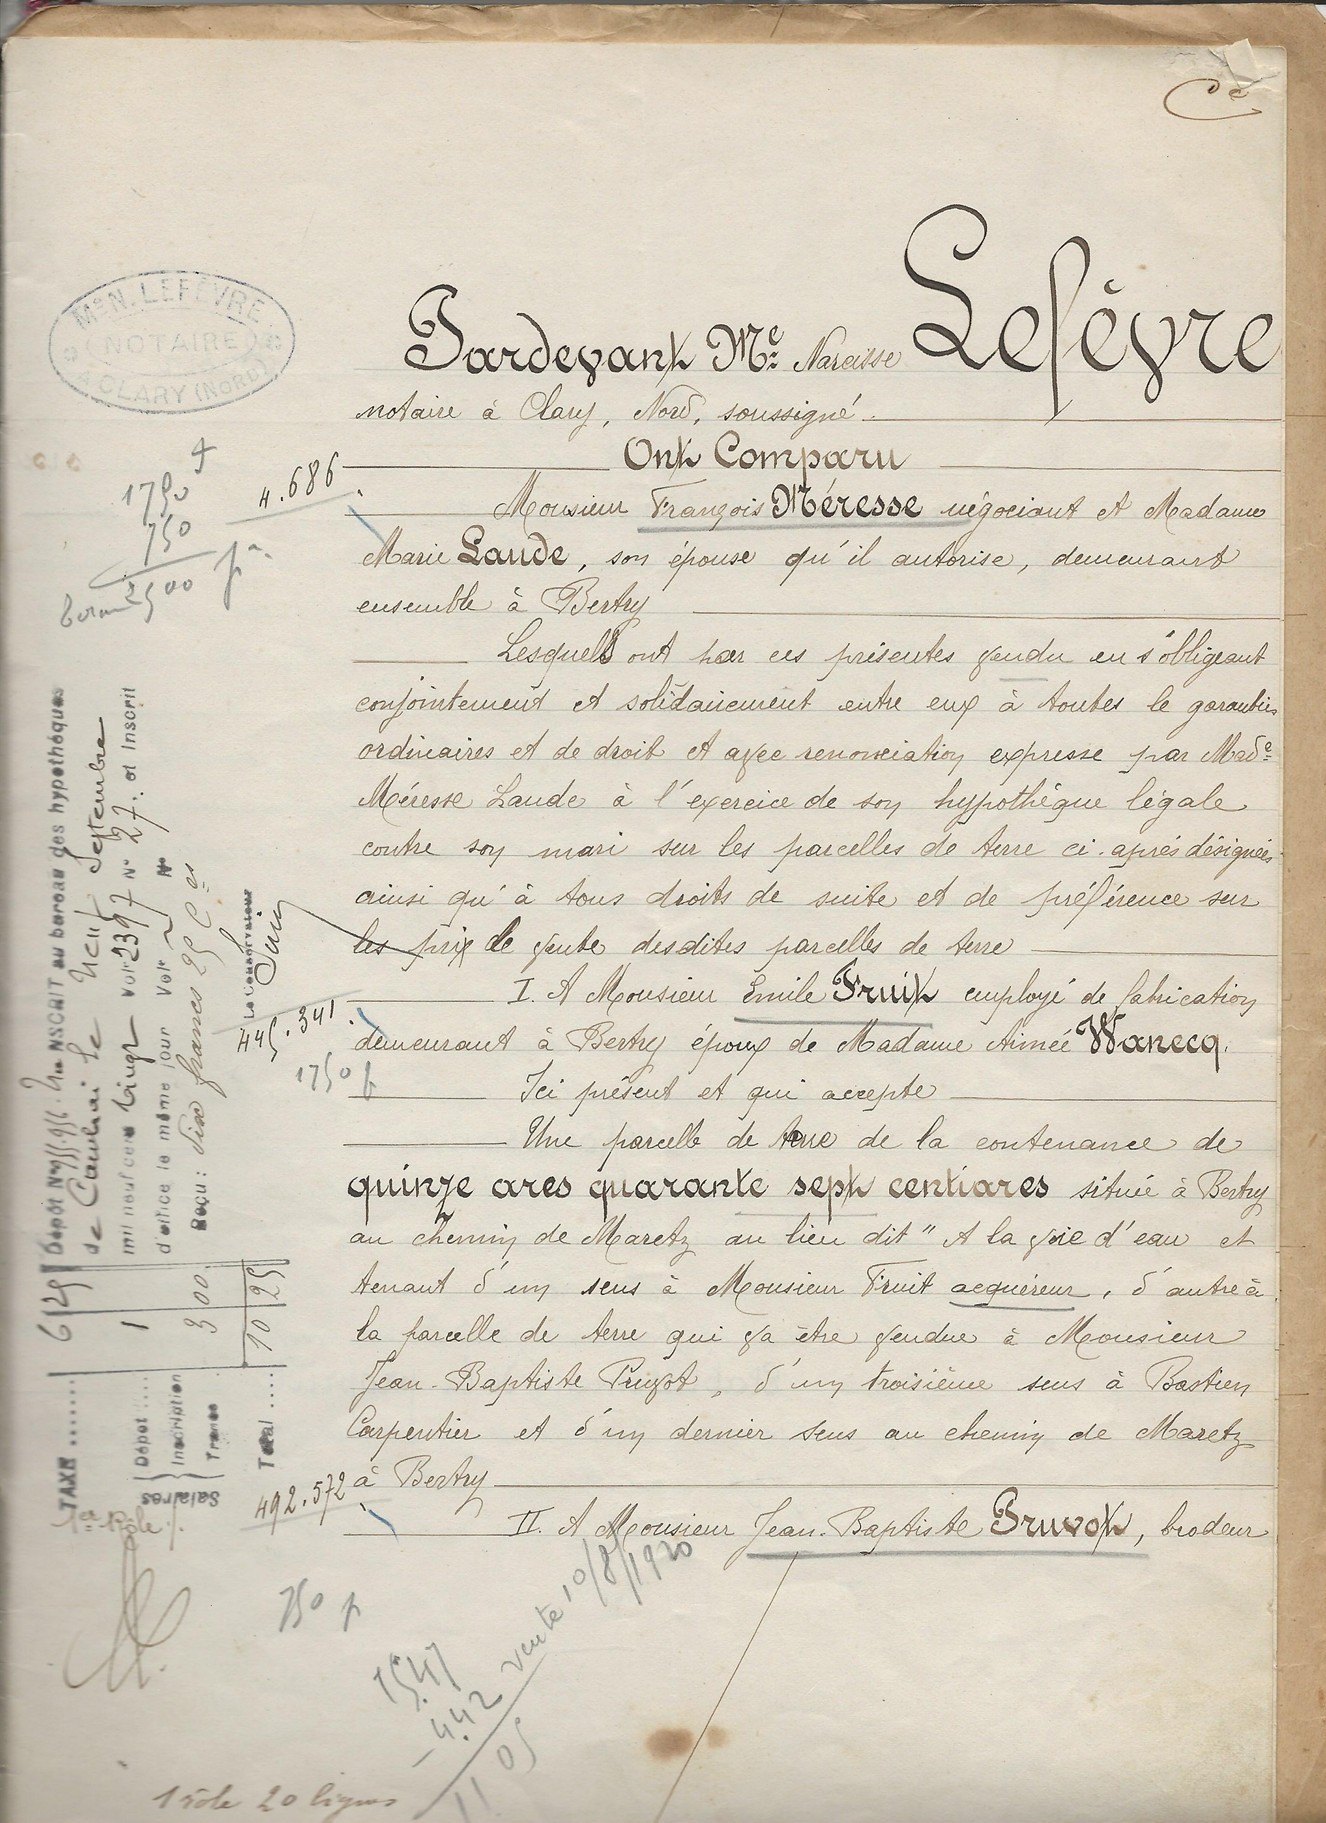 Cᵈᵉ
Mᵉ N. LEFÈVRE
NOTAIRE
A CLARY (NORD)
Pardevant Mᵉ Narcisse Lefèvre
notaire à Clary, Nord, soussigné.
Ont Comparu
4.686
1750
750
2500 f
Monsieur François Méresse négociant et Madame
Marie Laude, son épouse qu'il autorise, demeurant
ensemble à Bertry
Lesquels ont par ces présentes vendu en s'obligeant
conjointement et solidairement entre eux à toutes le garanties
ordinaires et de droit et avec renonciation expresse par Madᵉ
Méresse Laude à l'exercice de son hypothèque légale
contre son mari sur les parcelles de terre ci-après désignées
ainsi qu'à tous droits de suite et de préférence sur
les prix de vente desdites parcelles de terre
I. A Monsieur Emile Fruit employé de fabrication
445.341.
demeurant à Bertry époux de Madame Aimée Wanecq.
1750 f
Ici présent et qui accepte
Une parcelle de terre de la contenance de
quinze ares quarante sept centiares située à Bertry
au chemin de Maretz au lieu dit " A la voie d'eau et
tenant d'un sens à Monsieur Fruit acquéreur, d'autre à
la parcelle de terre qui va être vendue à Monsieur
Jean-Baptiste Pruvot, d'un troisième sens à Bastien
Carpentier et d'un dernier sens au chemin de Maretz
à Bertry
492.572
II. A Monsieur Jean-Baptiste Pruvot, brodeur
Dépôt Nº 955.956. TRANSCRIT au bureau des hypothèques
de Cambrai le neuf Septembre
mil neuf cent vingt Vol. 2397 Nº 27. et Inscrit
d'office le même jour Vol. Nº
Reçu: dix francs 25 Cᵉˢ
Le Conservateur
TAXE ....... 6 25
Salaires
Dépôt .... 1
Inscription
Transc. 3 00
Total .... 10 25
1ᵉʳ Rôle
750 f
vente 10/8/1920
15.47
- 4.42
11 05
1 rôle 20 lignes